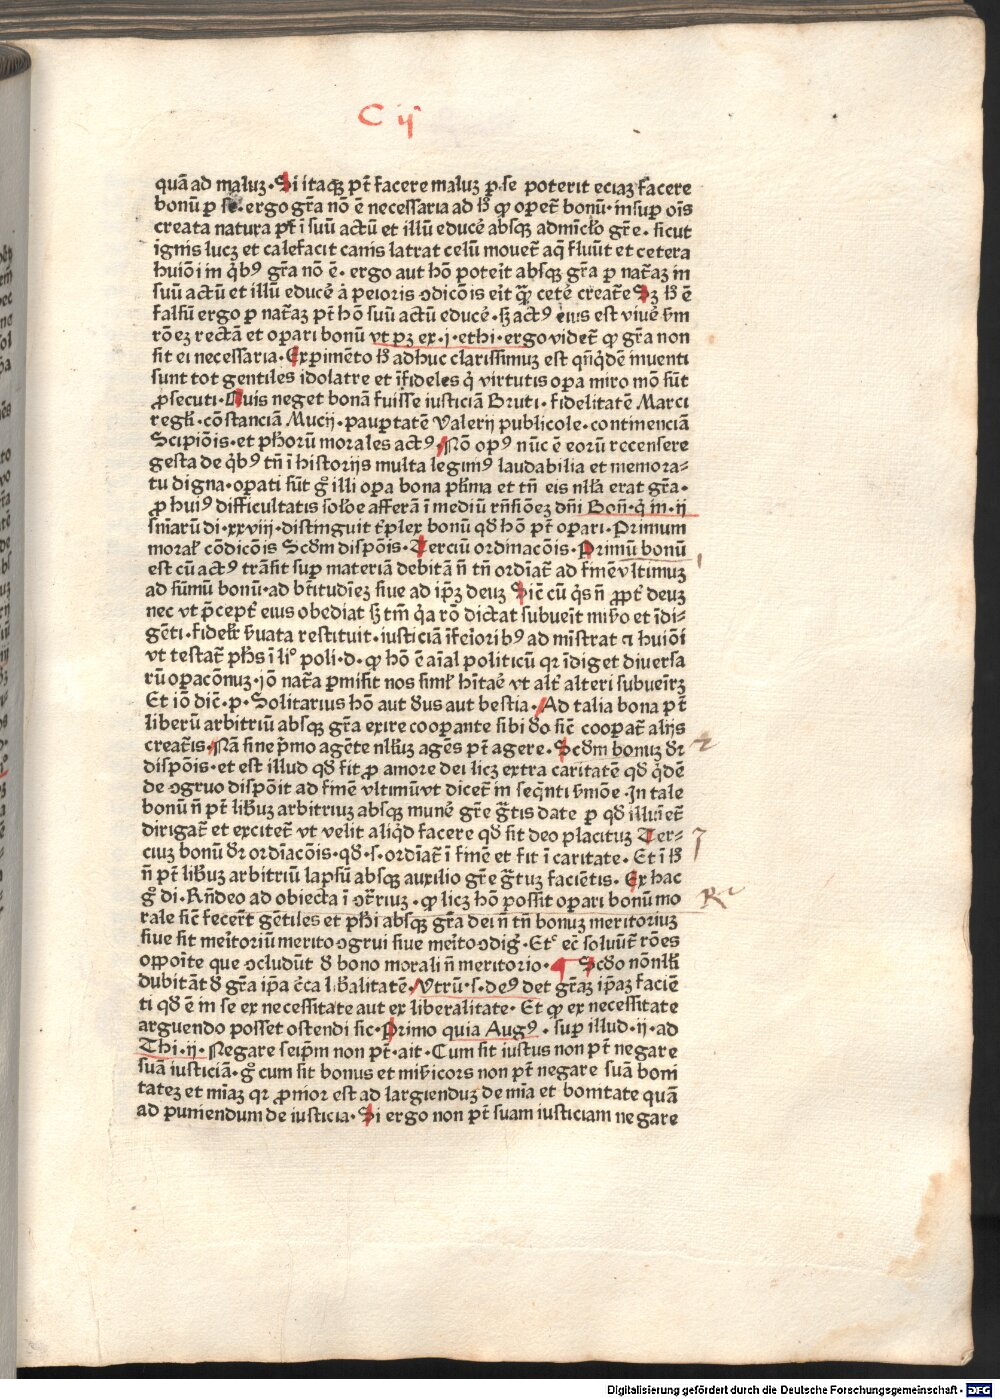 C ij
quā ad maluʒ· Si itaqʒ pt̄ facere maluʒ ꝑ se poterit eciaʒ facere
bonū ꝑ se· ergo gr̄a nō ē necessaria ad h̄ ꝙ oꝑet̄ bonū· insuꝑ oīs
creata natura pt̄ ī suū actū et illū educē absqʒ admīcl̄o gr̄e· sicut
ignis lucʒ et calefacit canis latrat celū mouet̄ aq̄ fluūt et cetera
huiōi in q̇bꝰ gr̄a nō ē· ergo aut hō poteīt absqʒ gr̄a ꝑ nat̄aʒ in
suū actū et illū educē ā peioris ꝯdicōis eīt q̄ʒ cetē creat̄e Sʒ h̄ ē
falsū ergo ꝑ nat̄aʒ pt̄ hō suū actū educē· sʒ actꝰ eius est viuē ẜm
rōeʒ rectā et oꝑari bonū vt pʒ ex·j·ethi·ergo videt̄ ꝙ gr̄a non
sit ei necessaria· Exꝑimēto h̄ adhuc clarissimuʒ est qn̄q̇dē inuenti
sunt tot gentiles idolatre et īfideles q̇ virtutis oꝑa miro mō sūt
ꝓsecuti· Quis neget bonā fuisse iusticiā Bruti· fidelitatē Marci
regl̄i· cōstanciā Mucij· pauꝑtatē Valerij publicole· continenciā
Scipiōis· et ph̄orū morales actꝰ· Nō opꝰ nūc ē eorū recensere
gesta de q̇bꝰ tn̄ ī historijs multa legimꝰ laudabilia et memora⸗
tu digna· oꝑati sūt g̊ illi oꝑa bona pl̄ima et tn̄ eis nl̄la erat gr̄a·
ꝓ huiꝰ difficultatis sol̄oe afferā ī mediū rn̄siōeʒ dn̄i Bon̄·q̇ in·ij
sn̄iarū di·xxviij·distinguit t̄plex bonū qḋ hō pt̄ oꝑari· Primum
moral̄ cōdicōis Scḋm disꝑōis· Terciū ordinacōis· Primū bonū
est cū actꝰ trāsit suꝑ materiā debitā n̄ tn̄ ordīat̄ ad fīnē vltimuʒ
ad sūmū bonū· ad bt̄itudīeʒ siue ad ip̄ʒ deuʒ Sic̄ cū q̇s n̄ ꝓpt̄ deuʒ
nec vt p̄cept̄ eius obediat sʒ tm̄ q̇a rō dictat subueīt mis̄o et īdi⸗
gēti· fidel̄r ẜuata restituit· iusticiā īfeiōribꝰ ad mīstrat ⁊ huiōi
vt testat̄ ph̄s ī liº poli·d·ꝙ hō ē aīal politicū qr īdiget diuersa
rū oꝑacōnuʒ·iō nat̄a ꝑmisit nos siml̄ hītaē vt alt̄ alteri subueīrʒ
Et iō dic̄·p· Solitarius hō aut ḋus aut bestia· Ad talia bona pt̄
liberū arbitriū absqʒ gr̄a exire cooꝑante sibi ḋo sic̄ cooꝑat̄ alijs
creat̄is· Nā sine p̄mo agēte nl̄luʒ agēs pt̄ agere· Scḋm bonuʒ ḋr
disꝑōis· et est illud qḋ fit ꝓ amore dei licʒ extra caritatē qḋ q̇dē
de ꝯgruo disꝑoīt ad fīnē vltimū vt dicet̄ in seq̄nti ẜmōe· In tale
bonū n̄ pt̄ lib̄uʒ arbitriuʒ absqʒ munē gr̄e gr̄tis date ꝑ qḋ illuīet̄
dirigat̄ et excitet̄ vt velit aliq̇d facere qḋ sit deo placituʒ Ter⸗
ciuʒ bonū ḋr ordīacōis· qḋ·s·ordīat̄ ī fīnē et fit ī caritate· Et ī h̄
n̄ pt̄ lib̄uʒ arbitriū lapsū absqʒ auxilio gr̄e gr̄tuʒ faciētis· Ex hac
g̊ di· Rn̄deo ad obiecta ī ꝯr̄riuʒ· ꝙ licʒ hō possit oꝑari bonū mo
rale sic̄ fecer̄t gētiles et ph̄i absqʒ gr̄a dei n̄ tn̄ bonuʒ meritoriuʒ
siue sit meītoriū merito ꝯgrui siue meīto ꝯdig̅· Etꝭ ec̄ soluūt̄ rōes
oppoīte que ꝯcludūt ḋ bono morali n̄ meritorio· ¶ Scḋo nōnl̄li
dubitāt ḋ gr̄a ip̄a c̄ca lib̄alitatē· Vtrū·s·deꝰ det gr̄aʒ ip̄aʒ faciē
ti qḋ ē in se ex necessitate aut ex liberalitate· Et ꝙ ex necessitate
arguendo posset ostendi sic· Primo quia Augꝰ· suꝑ illud·ij·ad
Thi·ij· Negare seip̄m non pt̄·ait· Cum sit iustus non pt̄ negare
suā iusticiā· g̊ cum sit bonus et mis̄icors non pt̄ negare suā boni
tateʒ et mīaʒ qr ꝓnior est ad largienduʒ de mīa et bonitate quā
ad puniendum de iusticia· Si ergo non pt̄ suam iusticiam negare
Digitalisierung gefördert durch die Deutsche Forschungsgemeinschaft · DFG